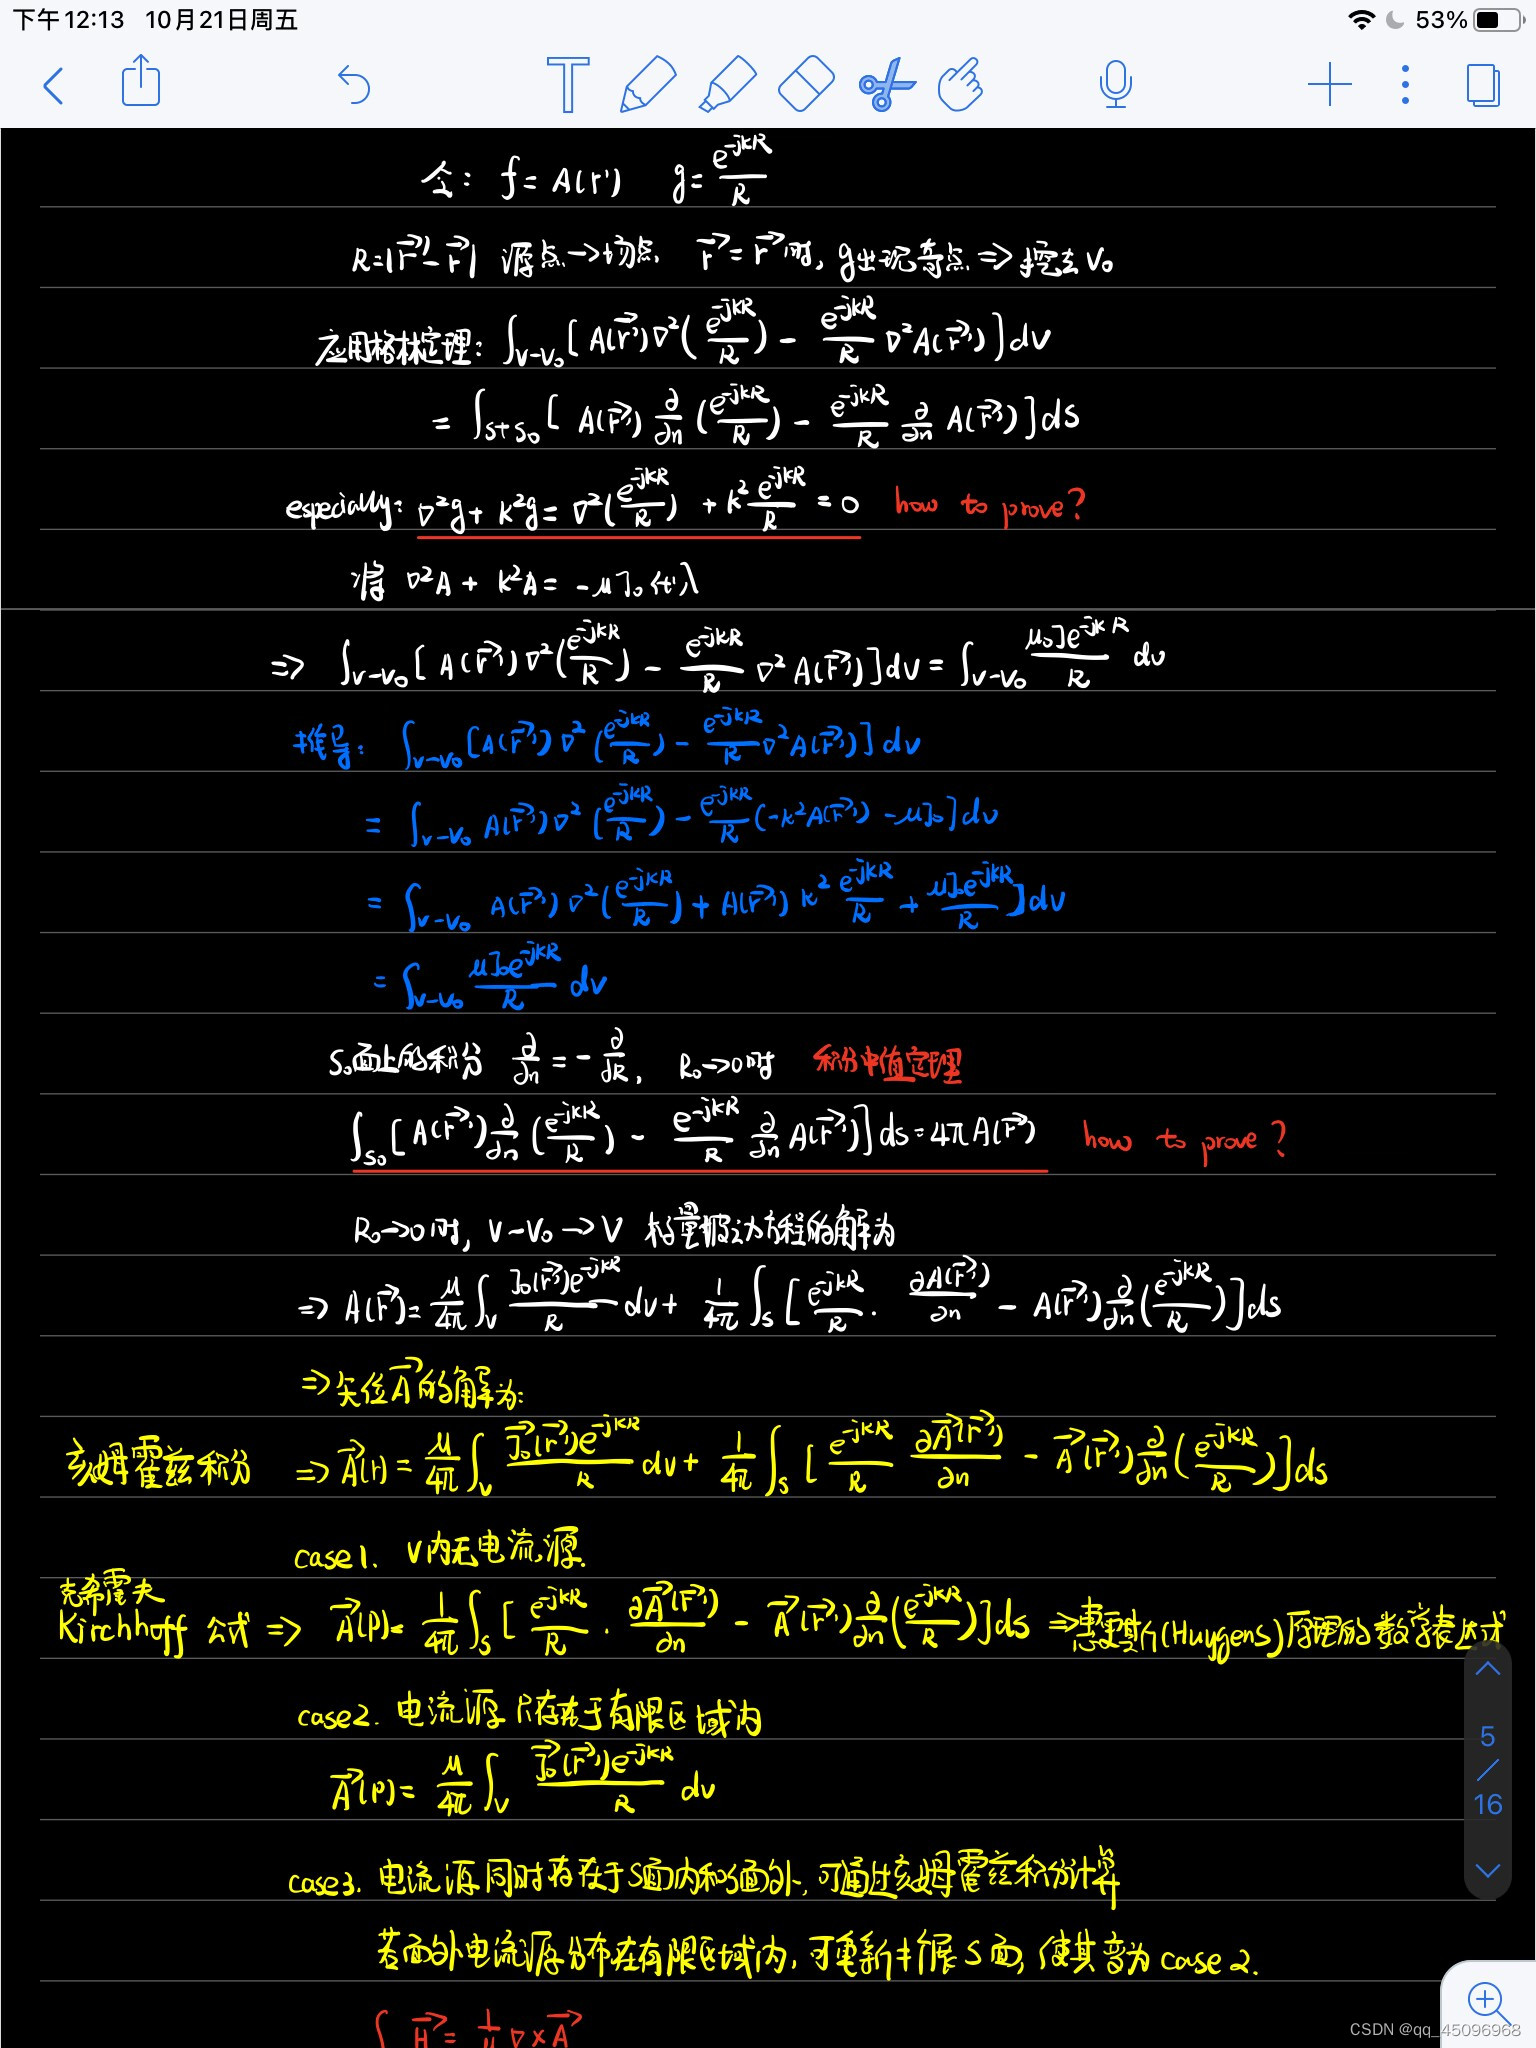 下午12:13 10月21日周五 53%
令: f = A(r') g = e^{-jkR}/R
R=|r⃗'-r⃗| 源点→场点 r⃗'=r⃗时, g出现奇点 ⇒ 挖去 V₀
应用格林定理: ∫_{V-V₀} [ A(r⃗')∇²(e^{-jkR}/R) - e^{-jkR}/R ∇²A(r⃗') ] dv
= ∫_{S+S₀} [ A(r⃗') ∂/∂n (e^{-jkR}/R) - e^{-jkR}/R ∂/∂n A(r⃗') ] ds
especially: ∇²g + k²g = ∇²(e^{-jkR}/R) + k² e^{-jkR}/R = 0 how to prove?
将 ∇²A + k²A = -μJ₀ 代入
⇒ ∫_{V-V₀} [ A(r⃗')∇²(e^{-jkR}/R) - e^{-jkR}/R ∇²A(r⃗') ] dv = ∫_{V-V₀} μ₀J e^{-jkR}/R dv
推导: ∫_{V-V₀} [A(r⃗')∇²(e^{-jkR}/R) - e^{-jkR}/R ∇²A(r⃗')] dv
= ∫_{V-V₀} A(r⃗')∇²(e^{-jkR}/R) - e^{-jkR}/R (-k²A(r⃗') - μJ₀] dv
= ∫_{V-V₀} A(r⃗')∇²(e^{-jkR}/R) + A(r⃗') k² e^{-jkR}/R + μJ₀e^{-jkR}/R ] dv
= ∫_{V-V₀} μJ₀e^{-jkR}/R dv
S₀面上的积分 ∂/∂n = -∂/∂R, R₀→0时 积分中值定理
∫_{S₀} [ A(r⃗')∂/∂n (e^{-jkR}/R) - e^{-jkR}/R ∂/∂n A(r⃗') ] ds = 4πA(r⃗) how to prove?
R₀→0时, V-V₀→V 标量波动方程的解为
⇒ A(r⃗) = μ/4π ∫_V J₀(r⃗')e^{-jkR}/R dv + 1/4π ∫_S [ e^{-jkR}/R · ∂A(r⃗')/∂n - A(r⃗')∂/∂n (e^{-jkR}/R) ] ds
⇒ 矢位A⃗的解为:
亥姆霍兹积分 ⇒ A⃗(r) = μ/4π ∫_V J⃗₀(r⃗')e^{-jkR}/R dv + 1/4π ∫_S [ e^{-jkR}/R ∂A⃗(r⃗')/∂n - A⃗(r⃗')∂/∂n (e^{-jkR}/R) ] ds
case1. V内无电流源.
克希霍夫
Kirchhoff 公式 ⇒ A⃗(P) = 1/4π ∫_S [ e^{-jkR}/R · ∂A⃗(r⃗')/∂n - A⃗(r⃗')∂/∂n (e^{-jkR}/R) ] ds ⇒ 惠更斯(Huygens)原理的数学表达式
case2. 电流源只存在于有限区域内
A⃗(P) = μ/4π ∫_V J⃗₀(r⃗')e^{-jkR}/R dv
case3. 电流源同时存在于S面内和S面外, 可通过亥姆霍兹积分计算
若面外电流源分布在有限区域内, 可重新扩展S面, 使其变为 case 2.
H⃗ = 1/μ ∇×A⃗
5
/
16
CSDN @qq_45096968